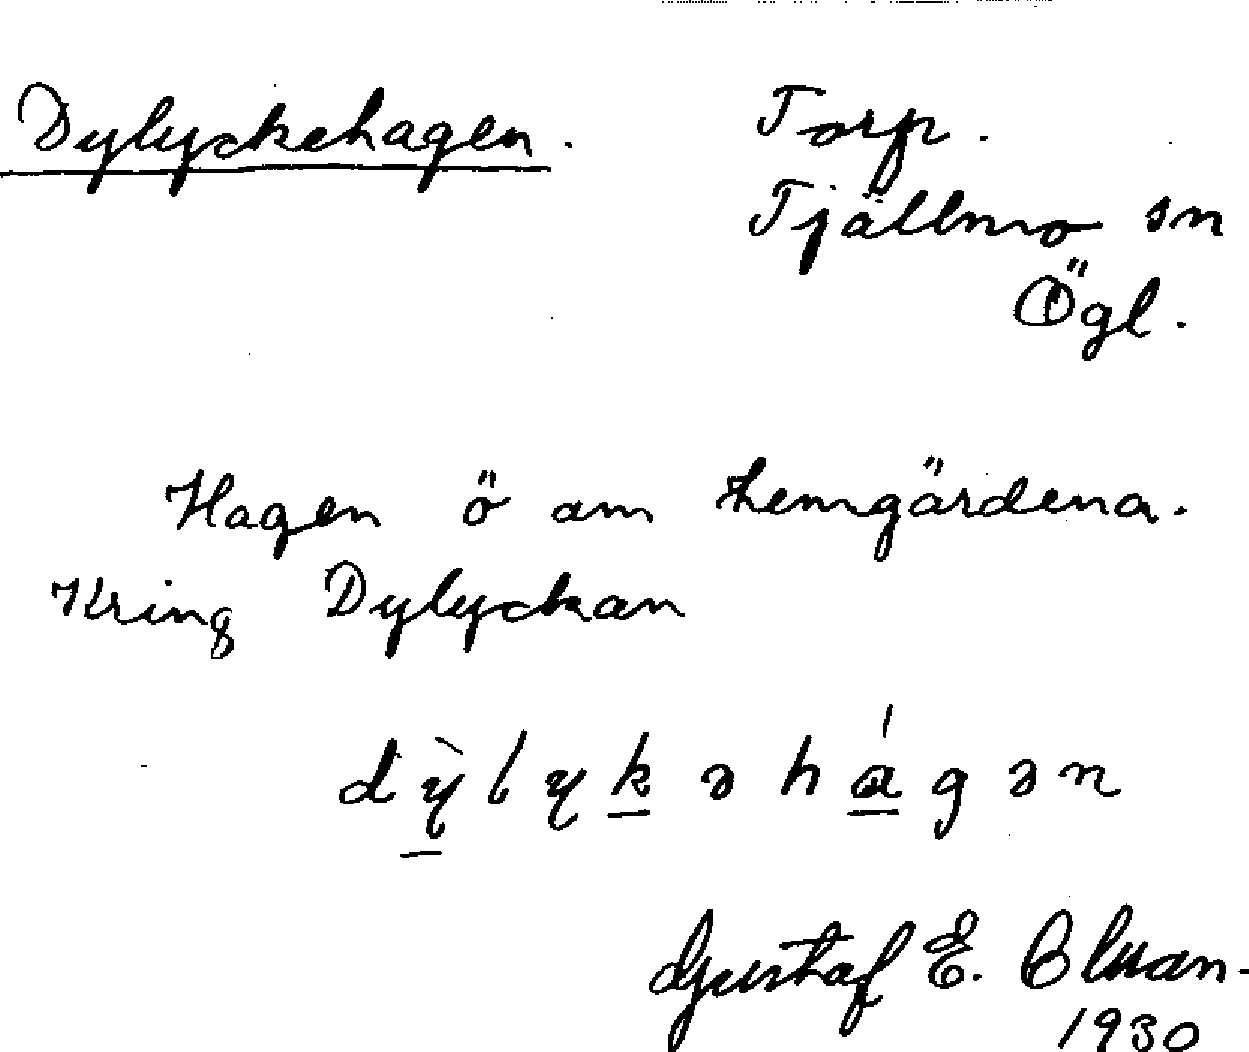 Dylyckehagen. Torp.
Tjällmo sn
Ögl.
Hagen ö am hemgärdena.
Kring Dylyckan
dỳlykəhágən
Gustaf E.
1930